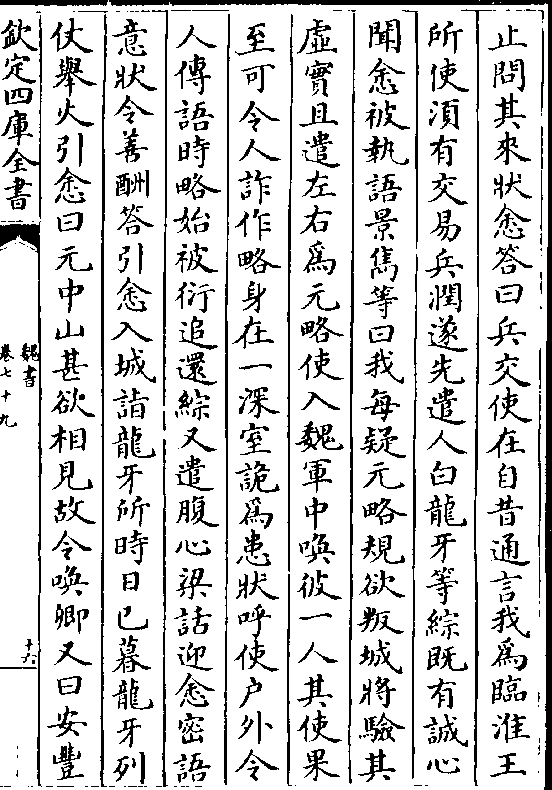 止問其來狀悆答曰兵交使在自昔通言我為臨淮王
所使湏有交易兵潤遂先遣人白龍牙等綜旣有誠心
聞悆被執語景雋等曰我每疑元略規欲叛城將驗其
虛實且遣左右為元略使入魏軍中喚彼一人其使果
至可令人詐作略身在一深室詭為患狀呼使户外令
人傳語時略始被衍追還綜又遣腹心梁話迎悆密語
意狀令善酬答引悆入城詣龍牙所時日已暮龍牙列
仗舉火引悆曰元中山甚欲相見故令喚卿又曰安豐
欽定四庫全書
魏書
卷七十九
十六